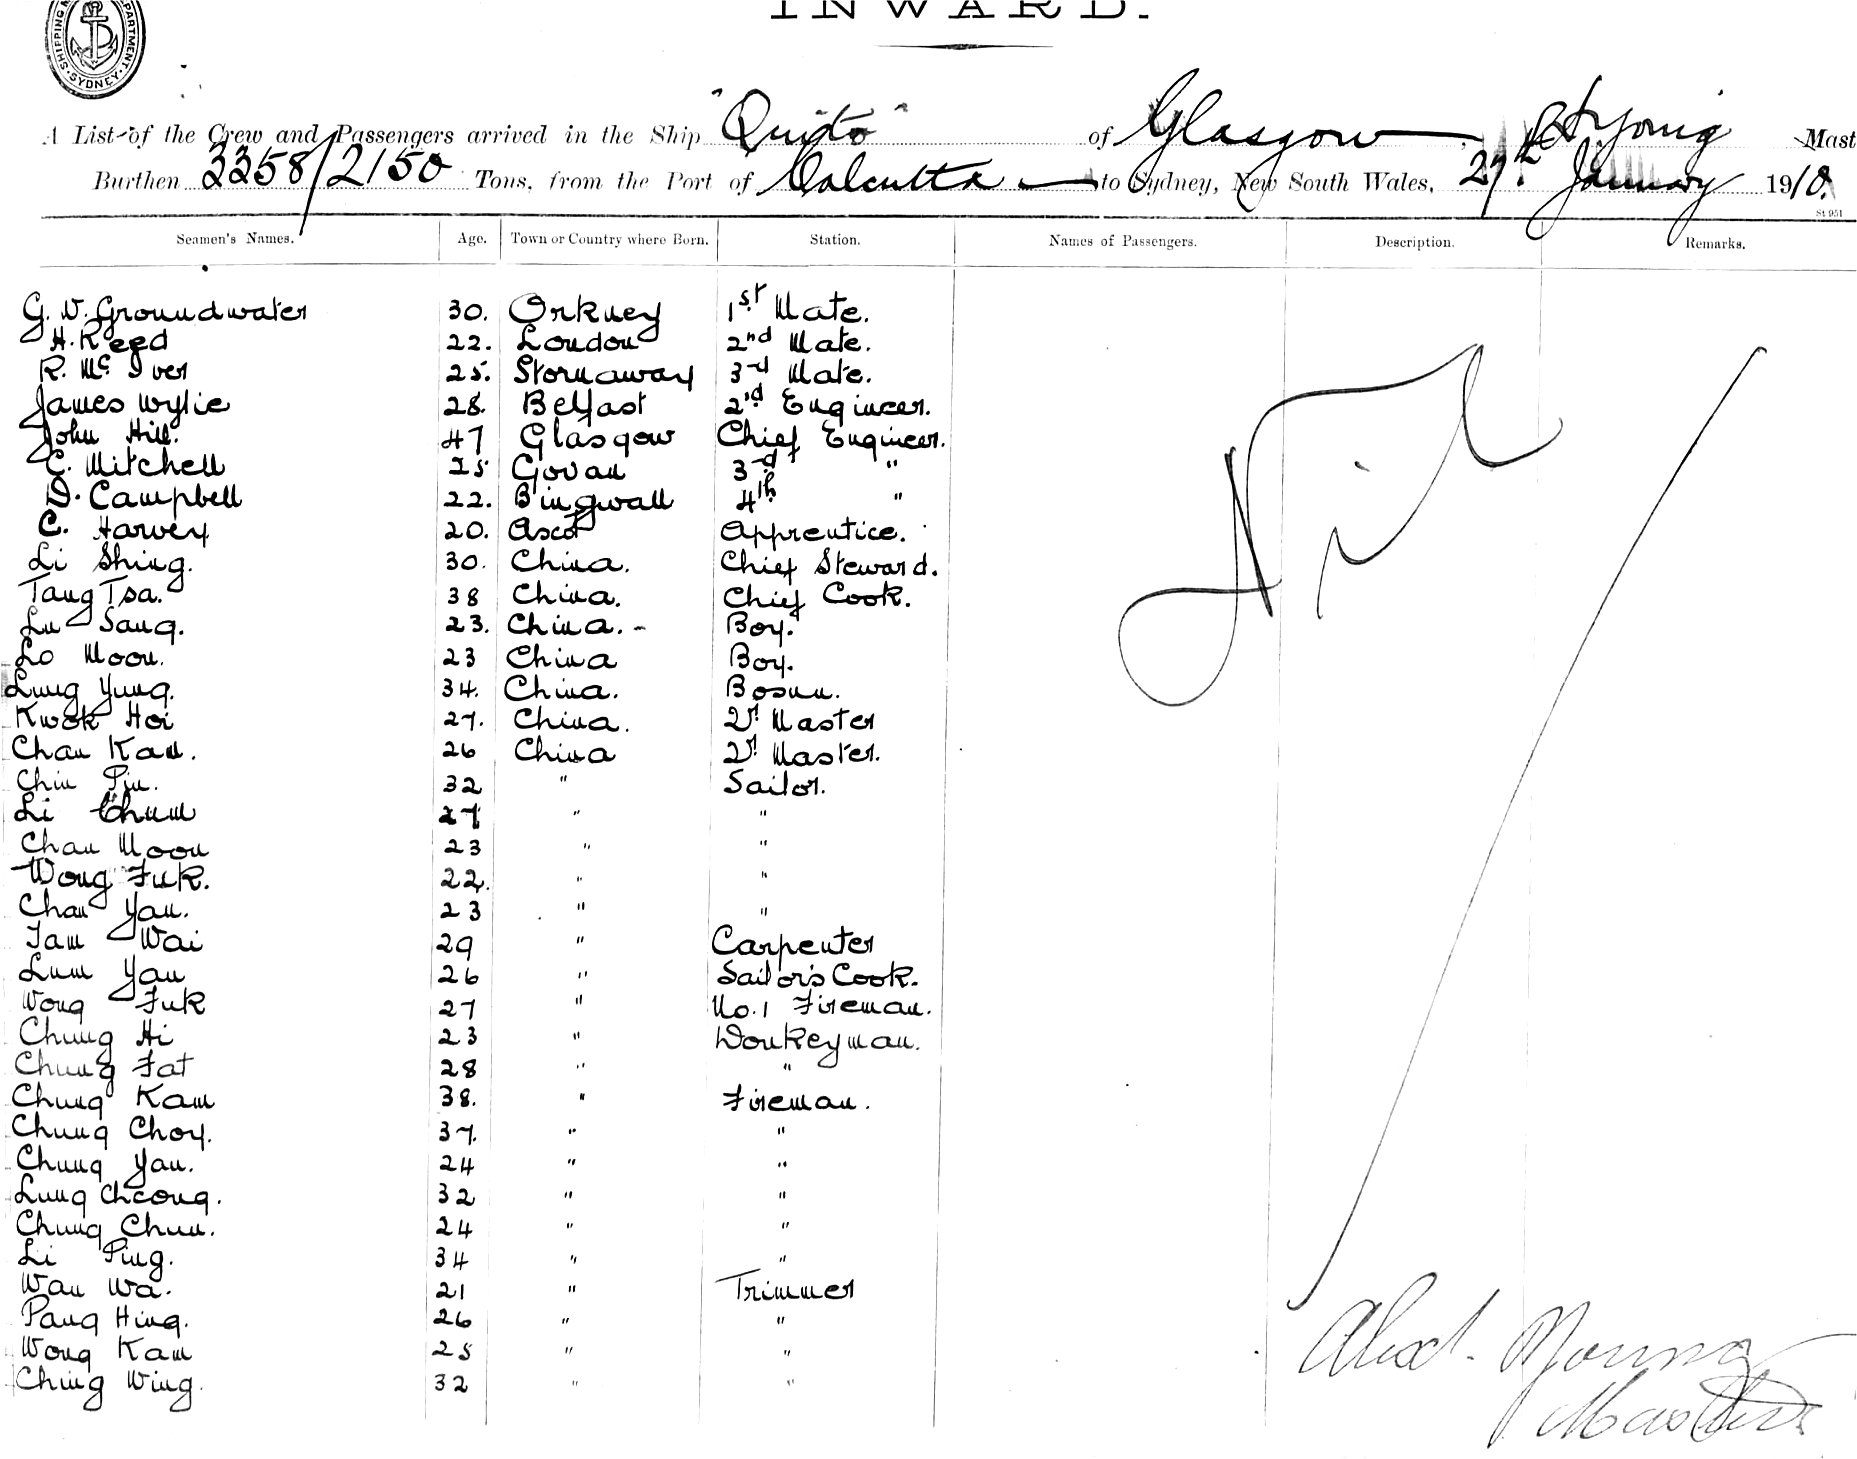 INWARD.
SHIPPING DEPARTMENT. SYDNEY
A List of the Crew and Passengers arrived in the Ship "Quito" of Glasgow, A Young Mast
Burthen 3358/2150 Tons, from the Port of Calcutta to Sydney, New South Wales, 27th January 1910.
St 951
Seamen's Names. Age. Town or Country where Born. Station. Names of Passengers. Description. Remarks.
G. W. Groundwater 30. Orkney 1st Mate.
H. Reed 22. London 2nd Mate.
R. McIver 25. Stornaway 3rd Mate.
James Wylie 28. Belfast 2nd Engineer.
John Hill. 47 Glasgow Chief Engineer.
C. Mitchell 25 Govan 3rd "
D. Campbell 22. Bingwall 4th "
C. Harvey 20. Ascot Apprentice.
Li Shing. 30. China. Chief Steward.
Tang Tsa. 38 China. Chief Cook.
Lu Sang. 23. China. - Boy.
Lo Moon. 23 China Boy.
Lung Yung. 34. China. Bosun.
Kwok Hoi 27. China. 2r Master
Chan Kan. 26 China 2r Master.
Chin Pin. 32 " Sailor.
Li Chum 27 " "
Chan Moon 23 " "
Wong Fuk. 22. " "
Chan Yau. 23 " "
Tam Wai 29 " Carpenter
Lum Yau 26 " Sailor's Cook.
Wong Fuk 27 " No. 1 Fireman.
Chung Hi 23 " Donkeyman.
Chung Fat 28 " "
Chung Kam 38. " Fireman.
Chung Choy. 37. " "
Chung Yau. 24 " "
Lung Cheong. 32 " "
Chung Chun. 24 " "
Li Ping. 34 " "
Wan Wa. 21 " Trimmer
Pang Hing. 26 " "
Wong Kam 25 " "
Ching Wing. 32 " "
Nil
Alexd. Young
Master